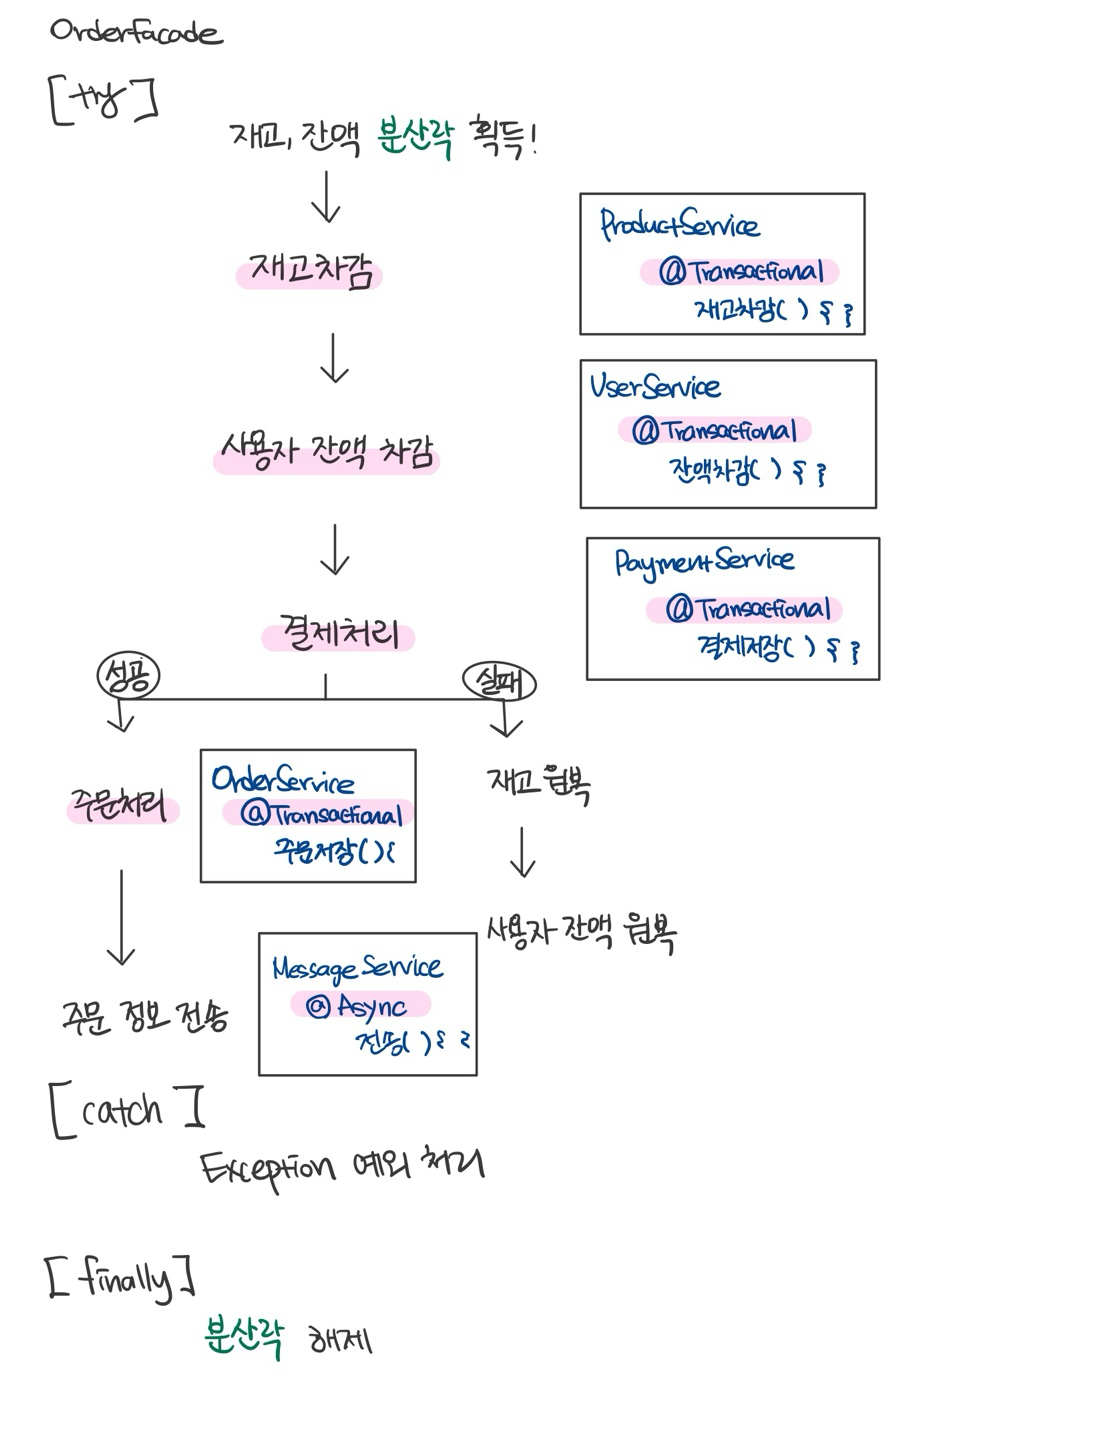 OrderFacade
[try]
재고, 잔액 분산락 획득!
재고차감
ProductService
@Transactional
재고차감( ) { }
사용자 잔액 차감
UserService
@Transactional
잔액차감( ) { }
결제처리
PaymentService
@Transactional
결제저장( ) { }
성공
실패
주문처리
OrderService
@Transactional
주문저장( ) {
재고 원복
사용자 잔액 원복
주문 정보 전송
MessageService
@Async
전송( ) { }
[catch]
Exception 예외 처리
[finally]
분산락 해제